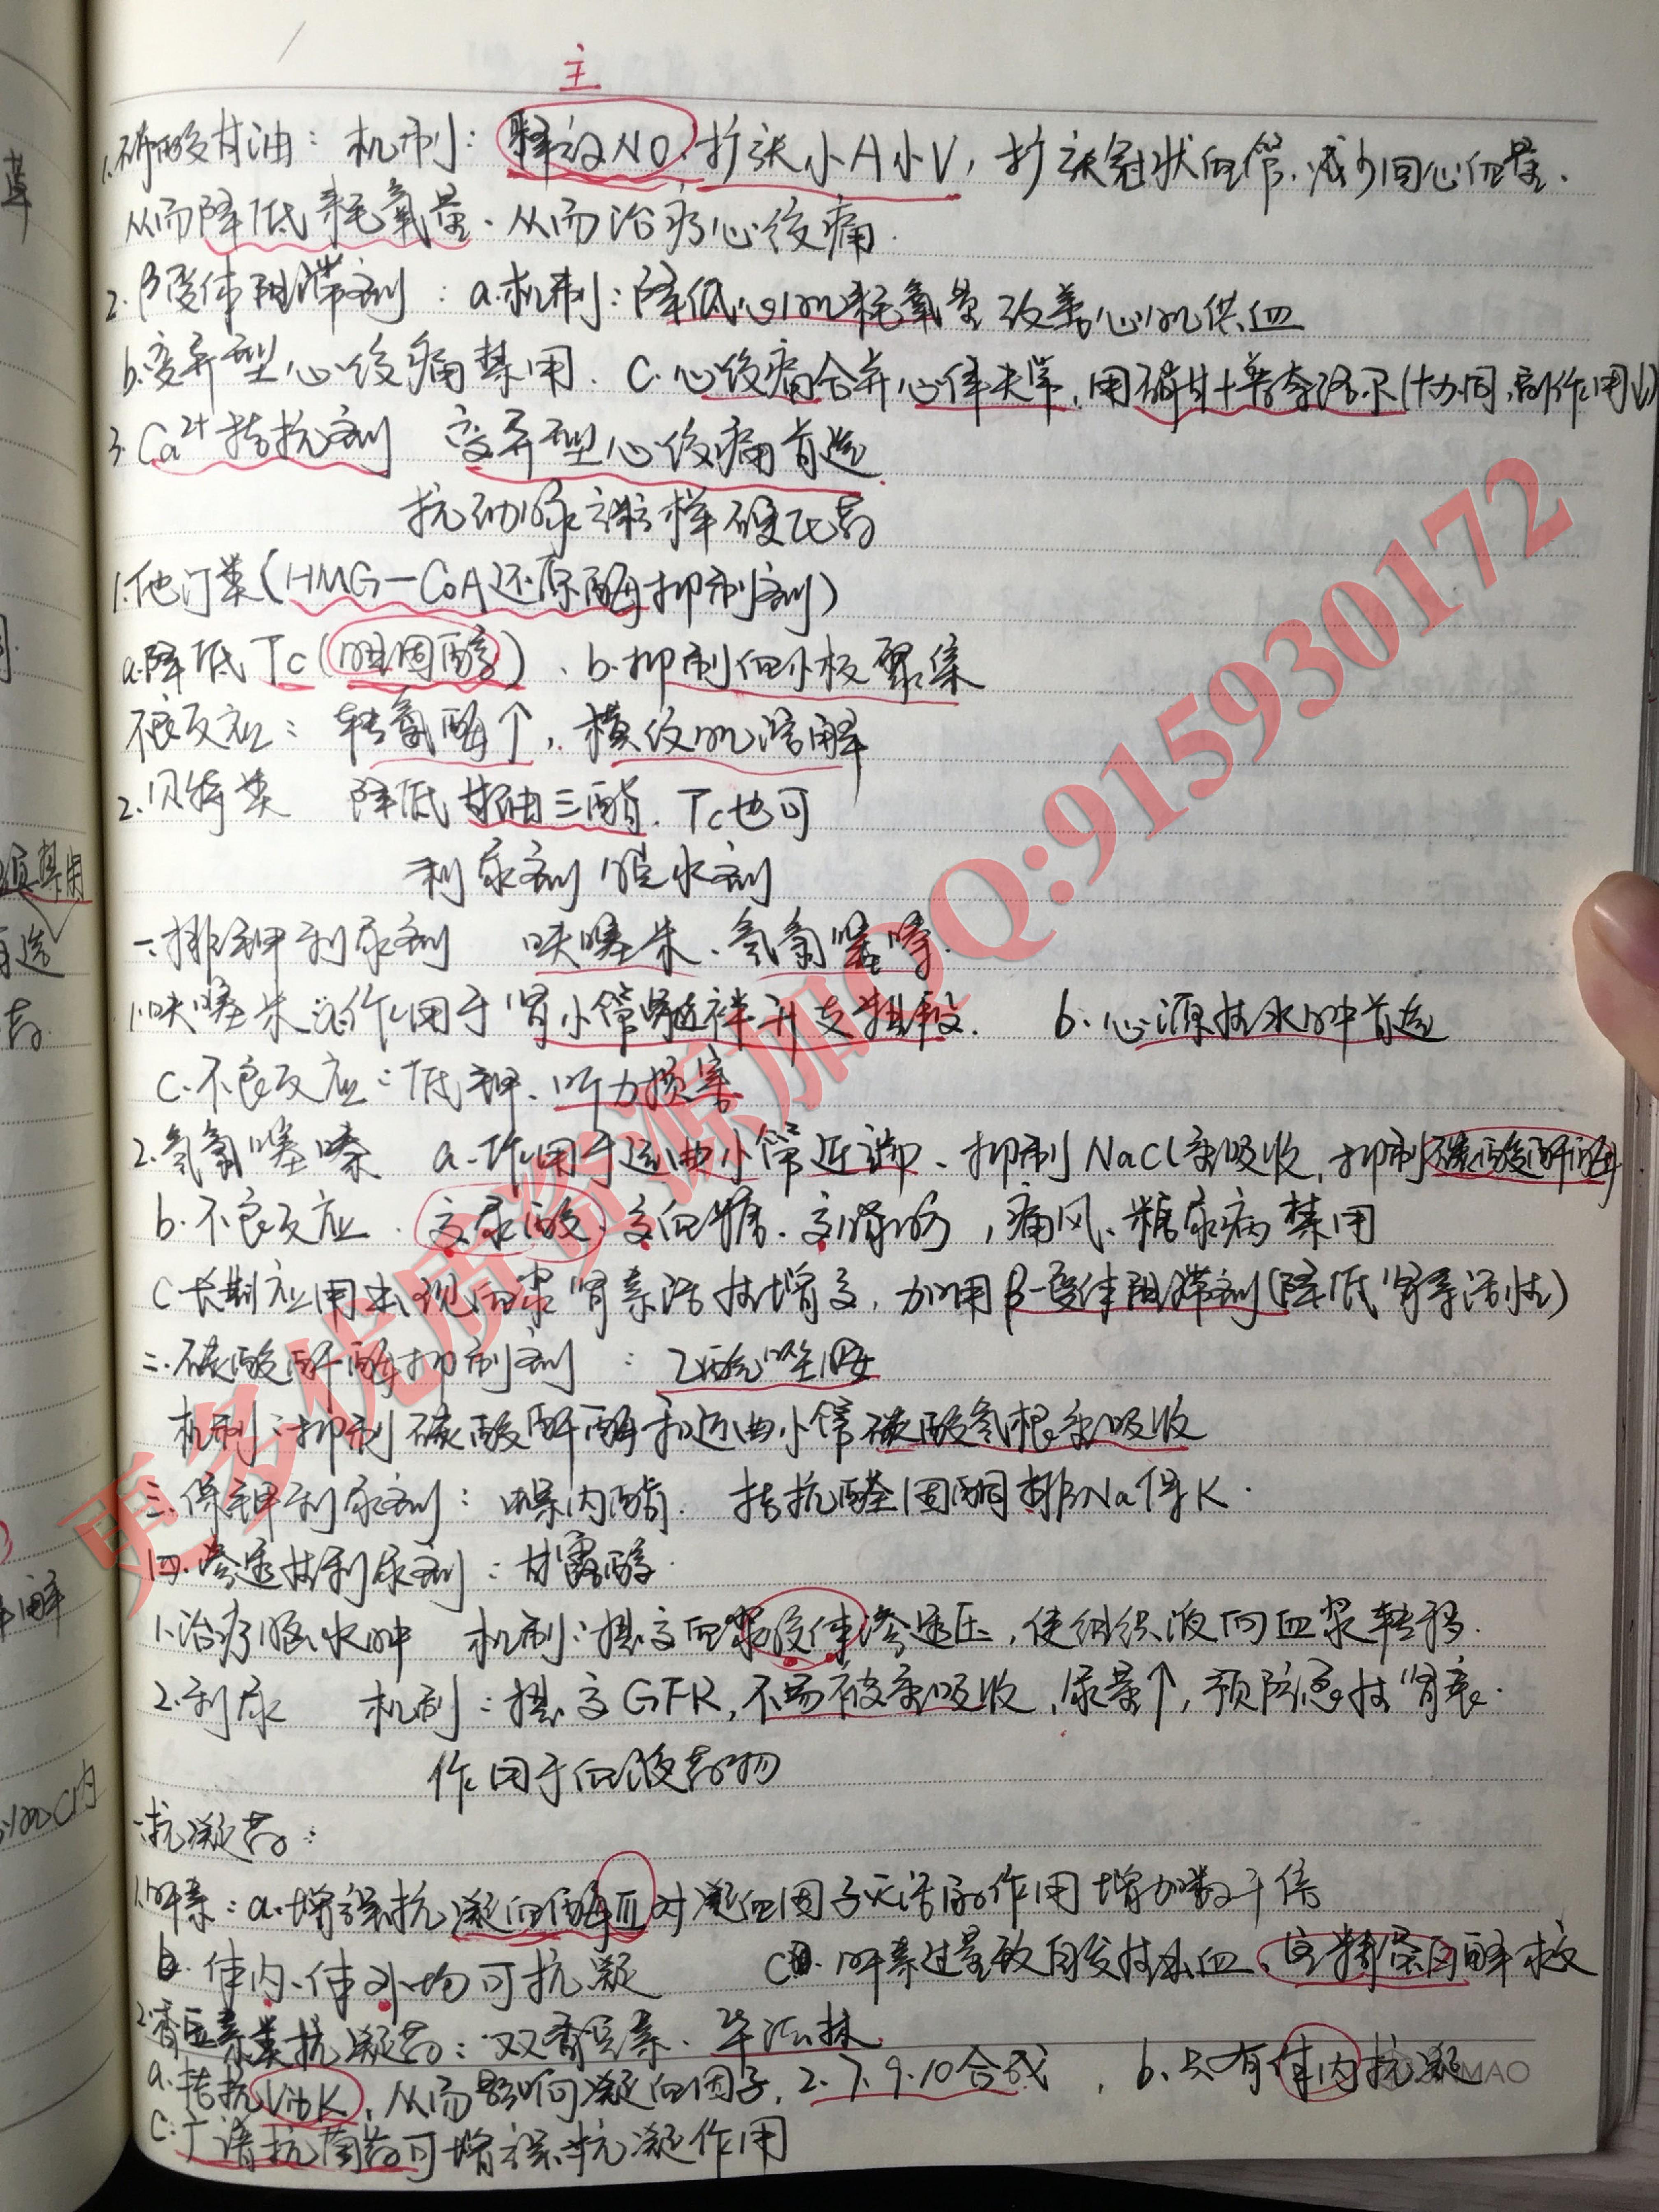 主
1.硝酸甘油：机制：释放NO，扩张小A小V，扩张冠状血管，减少回心血量，
从而降低耗氧量、从而治疗心绞痛.
2.β受体阻滞剂：a.机制：降低心肌耗氧量改善心肌供血
b.变异型心绞痛禁用. C.心绞痛合并心律失常，用硝甘+普萘洛尔(协同,副作用↓)
3.Ca²⁺拮抗剂 变异型心绞痛首选
抗动脉粥样硬化药
1.他汀类(HMG-CoA还原酶抑制剂)
a.降低Tc(胆固醇)、b.抑制血小板聚集
不良反应：转氨酶↑，横纹肌溶解
2.贝特类 降低甘油三酯. Tc也可
利尿剂 脱水剂
一.排钾利尿剂 呋噻米、氢氯噻嗪.
1.呋噻米 a.作用于肾小管髓袢升支粗段. b.心源性水肿首选
C.不良反应：低钾、听力损害
2.氢氯噻嗪 a.作用于远曲小管近端、抑制NaCl重吸收，抑制碳酸酐酶
b.不良反应. 高尿酸、高血糖、高脂，痛风、糖尿病禁用
C.长期应用出现血浆肾素活性增高，加用β-受体阻滞剂(降低肾素活性)
二.碳酸酐酶抑制剂：乙酰唑胺
机制：抑制碳酸酐酶和近曲小管碳酸氢根重吸收
三.保钾利尿剂：螺内酯. 拮抗醛固酮排Na保K.
四.渗透性利尿剂：甘露醇.
1.治疗脑水肿 机制：提高血浆胶体渗透压，使组织液向血浆转移.
2.利尿 机制：提高GFR，不易被重吸收，尿量↑，预防急性肾衰.
作用于血液药物
一.抗凝药：
1.肝素：a.增强抗凝血酶Ⅲ对凝血因子灭活的作用增加数千倍
b.体内、体外均可抗凝 C.肝素过量致自发性出血，鱼精蛋白解救
2.香豆素类抗凝药：双香豆素、华法林
a.拮抗VitK，从而影响凝血因子，2.7.9.10合成，b.只有体内抗凝
C.广谱抗菌药可增强抗凝作用
更多优质资源加QQ:915930172
MAO